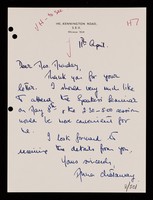 115, KENNINGTON ROAD,
S.E.11.
11th April.
Dear Mrs. Thursday,
Thank you for your
letter. I should very much like
to attend the Speakers Seminar
on May 8th & the 2.30-5.00 session
would be most convenient for
me.
I look forward to
receiving the details from you,
Yours sincerely,